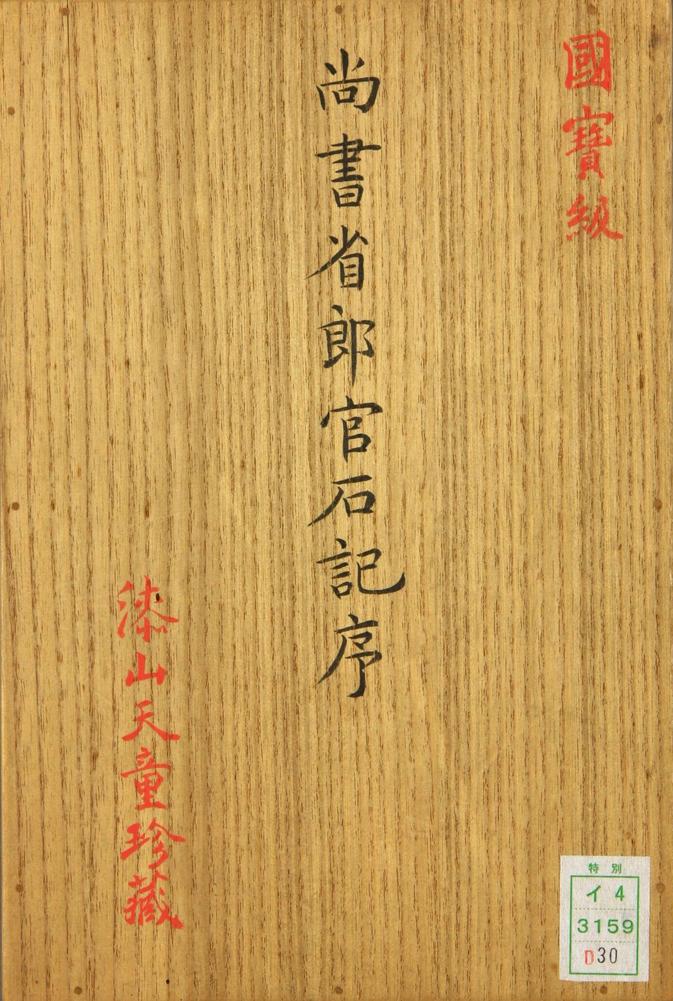 國寶級
尚書省郎官石記序
漆山天童珍藏
特別
イ4
3159
D30